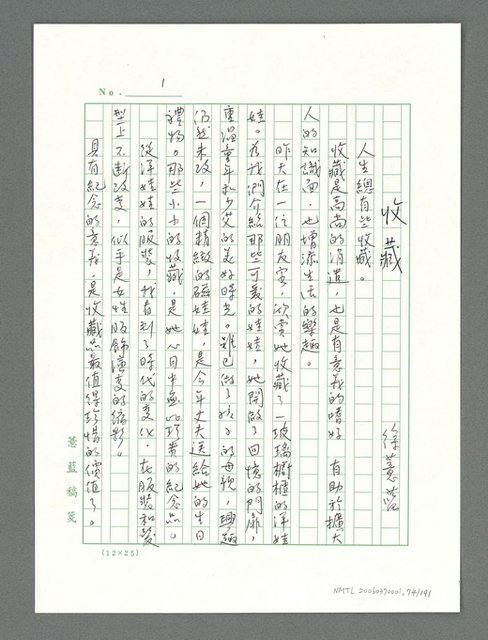 No. 1
收藏
徐薏藍
人生總有些收藏。
收藏是高尚的消遣,也是有意義的嗜好,有助於擴大
人的知識面,也增添生活的樂趣。
昨天在一位朋友家,欣賞她收藏了一玻璃櫥櫃的洋娃
娃。為我們介紹那些可愛的娃娃,她開啟了回憶的門扉,
重溫童年和少艾的美好時光。雖已做了孩子的母親,興趣
仍然未改,一個精緻的磁娃娃,是今年丈夫送給她的生日
禮物。那些小小的收藏,是她心目中無比珍貴的紀念品。
從洋娃娃的服裝,我看到了時代的變化,在服裝和髮
型上不斷改變,似乎是女性服飾演變的縮影。
具有紀念的意義,是收藏品最值得珍惜的價值了。
薏藍稿箋
(12×25)
NMTL 20060370001, 74/191